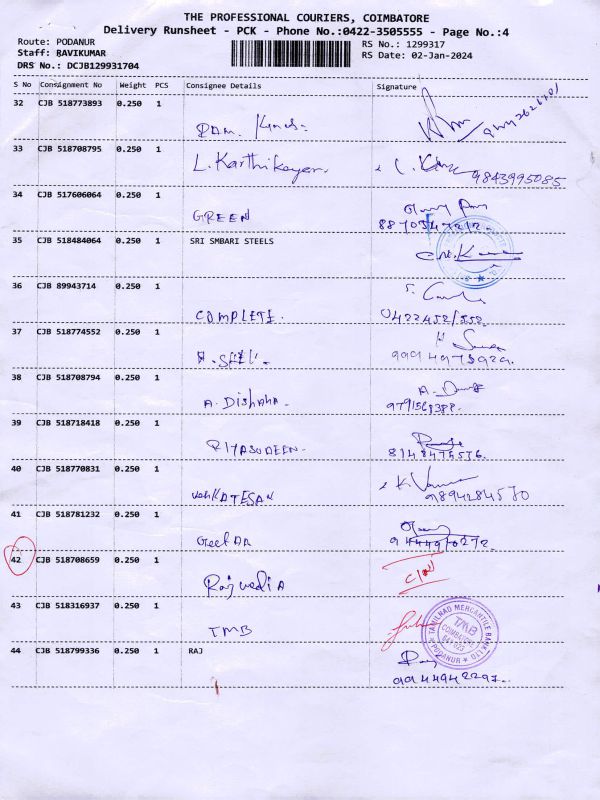 THE PROFESSIONAL COURIERS, COIMBATORE
Delivery Runsheet - PCK - Phone No.:0422-3505555 - Page No.:4
Route: PODANUR
RS No.: 1299317
Staff: RAVIKUMAR
RS Date: 02-Jan-2024
DRS No.: DCJB129931704
S No Consignment No Weight PCS Consignee Details Signature
32 CJB 518773893 0.250 1
33 CJB 518708795 0.250 1
L. Karthikeyan. 9843995085
34 CJB 517606064 0.250 1
GREEN
35 CJB 518484064 0.250 1 SRI SMBARI STEELS
36 CJB 89943714 0.250 1
COMPLETE. 0422452/552
37 CJB 518774552 0.250 1
38 CJB 518708794 0.250 1
A. Dishaha.
39 CJB 518718418 0.250 1
RIYASUDEEN.
40 CJB 518770831 0.250 1
VenKATESAN 9894284570
41 CJB 518781232 0.250 1
42 CJB 518708659 0.250 1
43 CJB 518316937 0.250 1
TMB
TAMILNAD MERCANTILE BANK LTD
TMB
COIMBATORE
641 023
PODANUR
44 CJB 518799336 0.250 1 RAJ
9944942297.